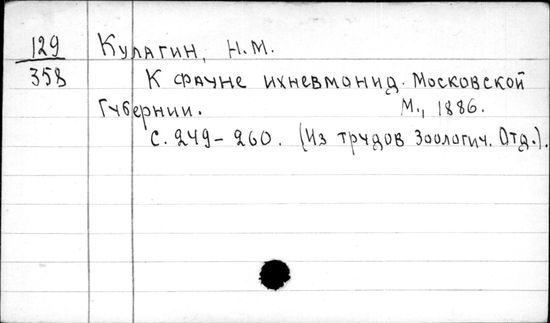 129 Кулагин, Н.М.
358 К фауне ихневмонид Московской
Губернии. М., 1886.
с. 249-260. (Из трудов Зоологич. Отд.).